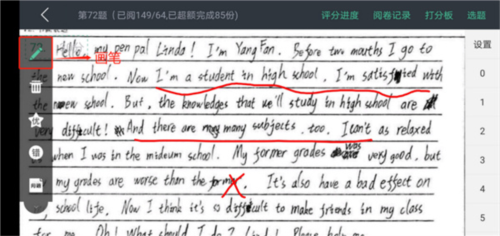 第72题（已阅149/64,已超额完成85份）
评分进度 阅卷记录 打分板 选题
画笔
设置
Hello, my pen pal Linda! I'm Yang Fan. Before two mouths I go to
the new school. Now I'm a student in high school. I'm satisfied with
the new school. But, the knowledges that we'll study in high school are
very difficult! And there are many subjects, too. I can't as relaxed
when I was in the mideum school. My former grades was very good, but
my grades are worse than the It's also have a bad effect on
school life. Now I think it's difficult to make friends in my class
for me. Oh! What should I do? Linda! Please help me
优
错
0
1
2
3
4
5